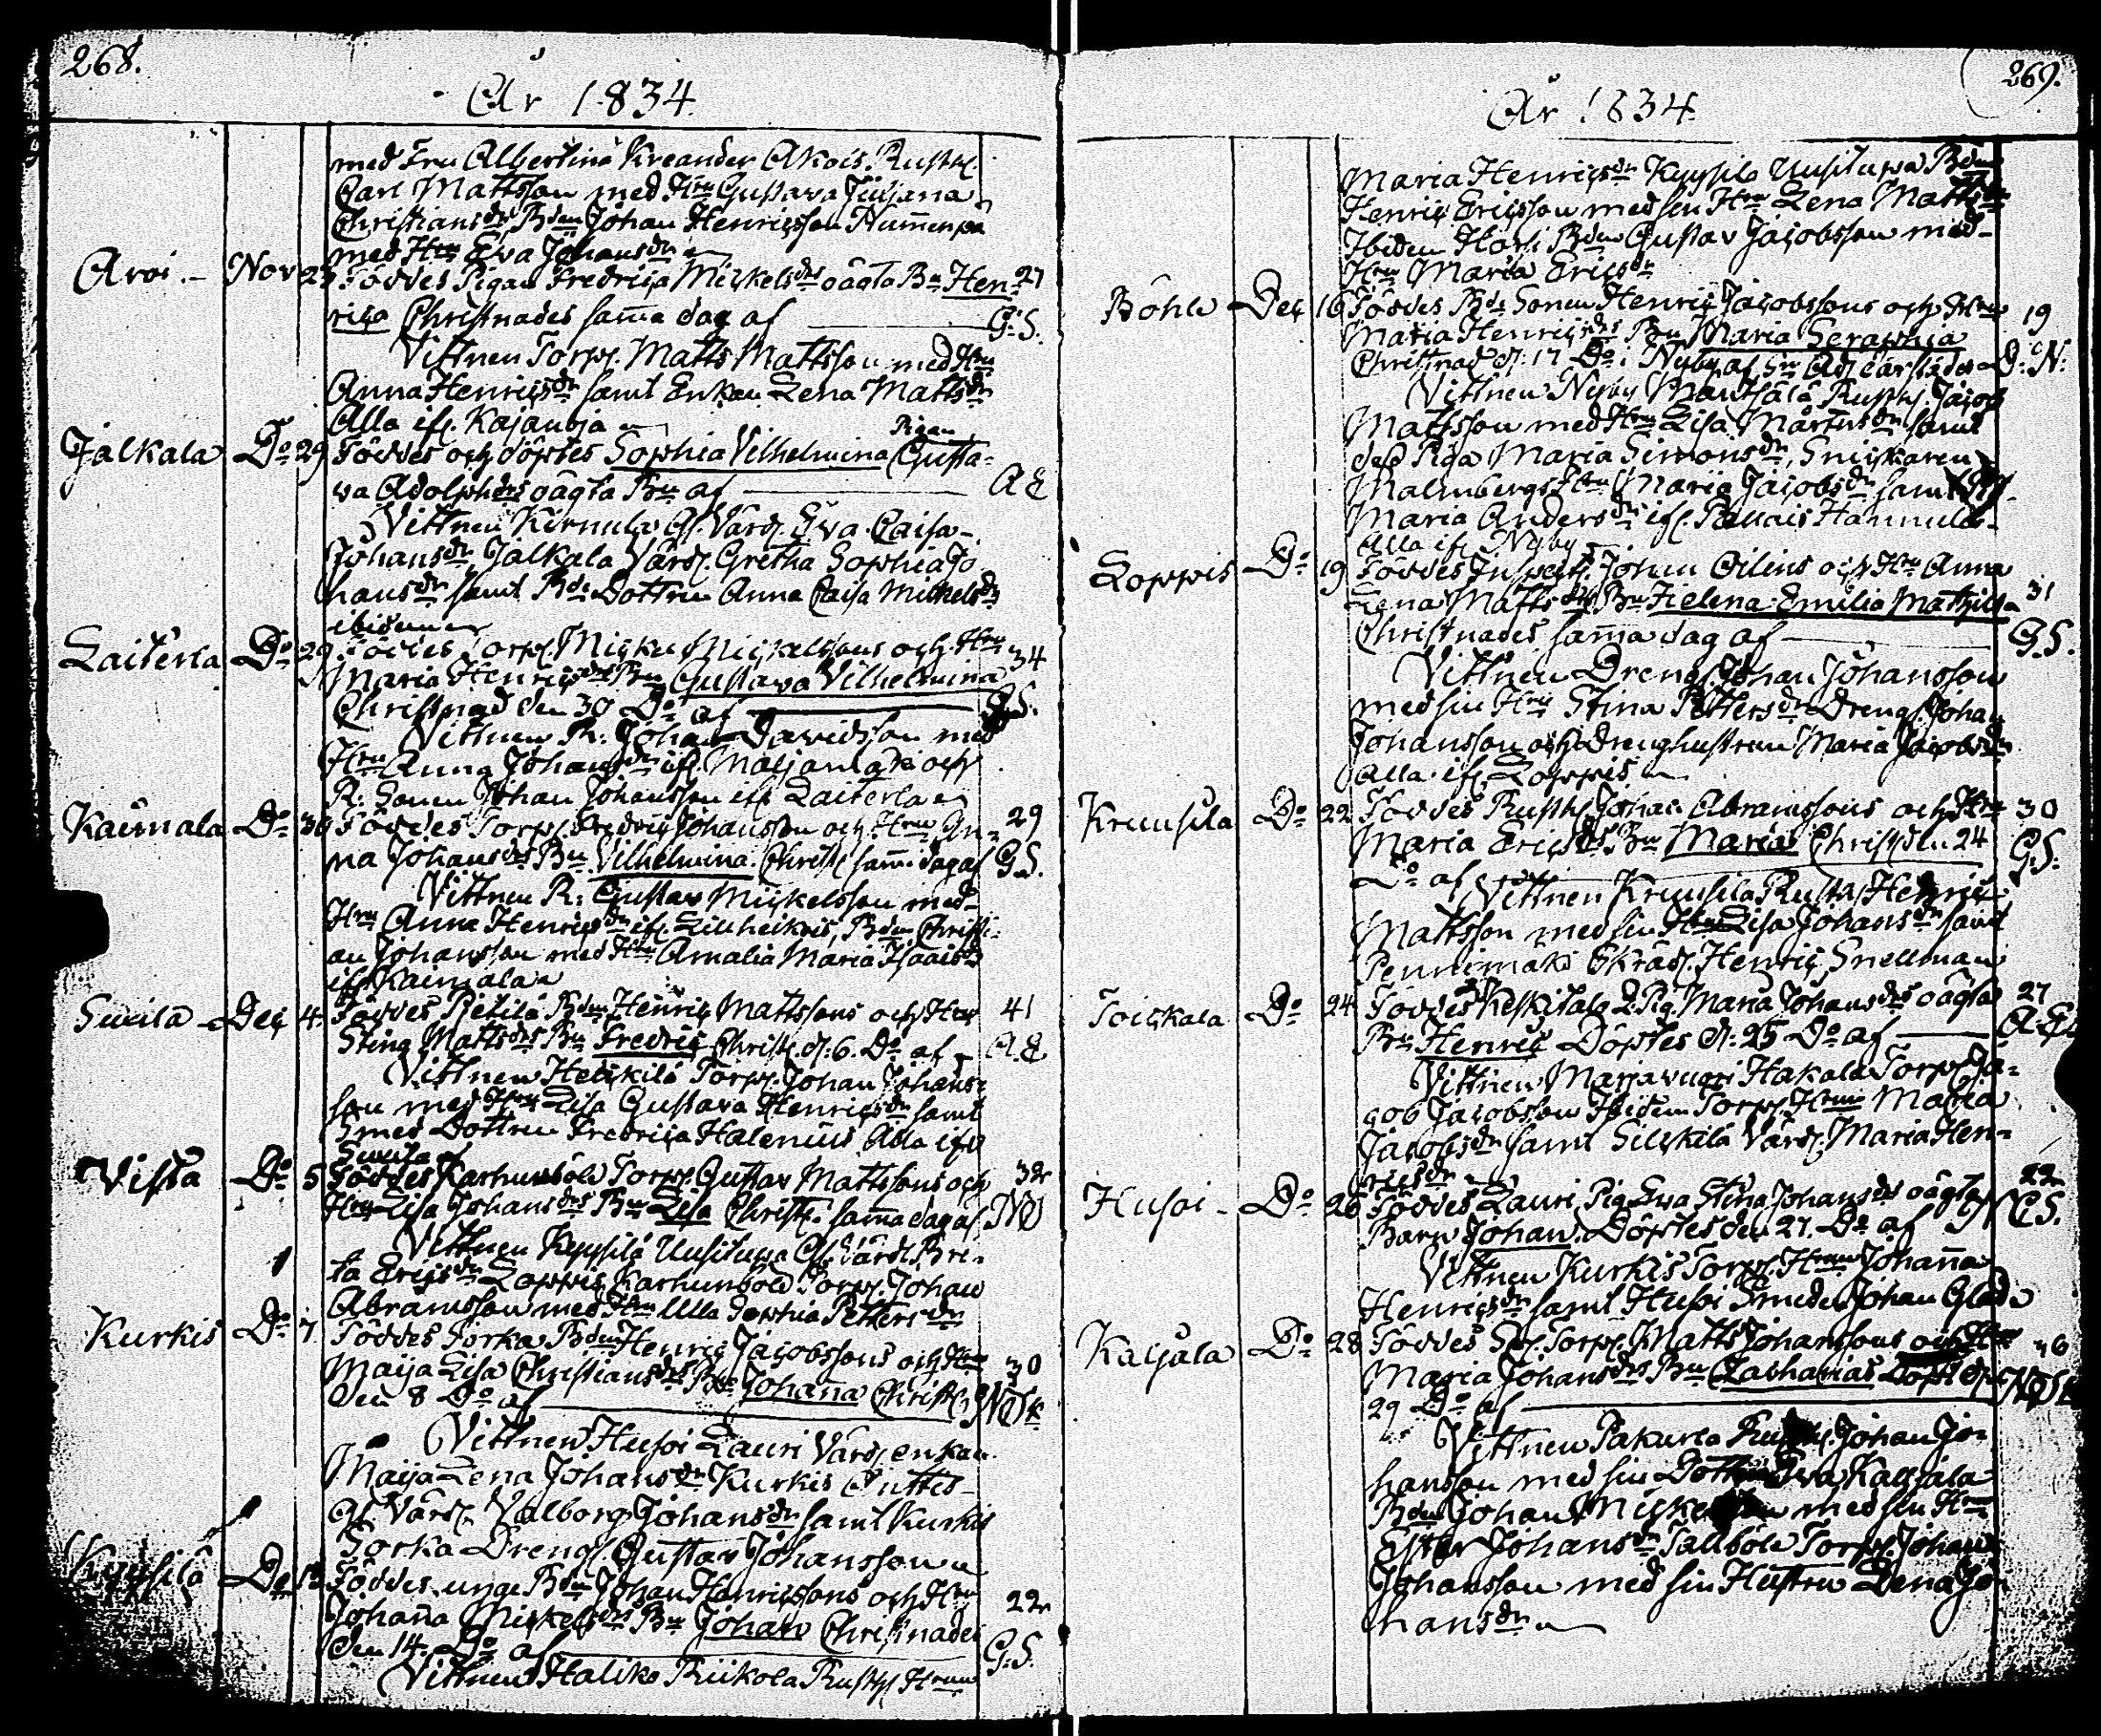 268.
År 1834.
med Fru Albertina Kreander Akois Rusth.
Carl Mattsson med Hru Gustava Juliana
Christiansdr, Bdn Johan Henricsson Hum̄enpä
med Hru Eva Johansdr
Aroi. Nov 29 Föddes Pigan Fredrica Mickelsdrs oägta Bn Hen- 27
rica Christnades sam̄a dag af G.S.
Vittnen Torp. Matts Mattsson med Hru
Anna Henricsdr samt Enkan Lena Mattsdr
Alla ifr. Kajanoja
Jalkala Do 29 Föddes och döptes Sophia Vilhelmina Pigan Gusta-
va Adolphdrs oägta Bn af A E
Vittnen Kirnula Gl. Värd. Eva Caisa
Johansdr, Jalkala Värd. Gretha Sophia Jo
hansdr samt Bde Dottren Anna Caisa Michelsdr
ibidem
Laiterla Do 29 Föddes Torp. Mickel Mickelssons och Hru 34
Maria Henricsdrs Bn Gustava Vilhelmina
Christnad den 30 Do af G.S.
Vittnen R. Johan Davidsson med
Hru Anna Johansdr ifr. och
R. Sonen Johan Johansson ifr Laiterla
Kaimala Do 30 Föddes Torp. Fredric Johansson och Hru An- 29
na Johansdrs Bn Vilhelmina Christ. sam̄ dag af G.S.
Vittnen R. Gustav Mickelsson med
Hru Anna Henricsdr ifr. Lillheikois, Bdn Christi-
an Johansson med Hru Amalia Maria Isaacsdr
ifr Kaimala
Suuila Dec 4 Föddes Pietilä Bdn Henric Mattssons och Hru 41
Stina Mattsdrs Bn Fredric Christ. d. 6. Do af A.E
Vittnen Heickilä Torp. Johan Johans-
son med Hru Lisa Gustava Henricsdr samt
Smeds Dottren Fredrica Halenius Alla ifr
Suuila
Vista Do 5 Föddes Karhunböle Torp. Gustav Mattssons och 32
Hru Lisa Johansdrs Bn Lisa Christ. sam̄a dag af
Vittnen Kyysilä Uusitupa Gl. Värd. Bri-
ta Ericsdr Loppis Karhunböle Torp. Johan
Abramsson med Hru Ulla Sophia Pettersdr
Kurkis Do 7 Föddes Torka Bdn Henric Jacobssons och Hru 30
Maija Lisa Christiansdrs Bn Johan̄a Christ.
den 8 Do af
Vittnen Husoi Lauri Värd. enkan
Maija Lena Johansdr Kurkis
Gl Värd. Valborg Johansdr samt Kurkis
Torka Dreng. Gustav Johansson
Kyysilä Do 13 Föddes unge Bdn Johan Henricssons och Hru 22
Johan̄a Mickelsdrs Bn Johan Christnades
den 14. Do af G.S.
Vittnen Haliko Riikola Rusth Hrun
269.
År 1834.
Maria Henricsdr Kyysilä Uusitupa Bdn
Henric Ericsson med sin Hru Lena Mattsdr
Ibidem Bdn Gustav Jacobsson med
Hru Maria Ericsdr
Böhle Dec 16 Föddes Bde Sonen Henric Jacobssons och Hru 19
Maria Henricsdrs Bn Maria Seraphia
Christnad d. 17 Do i Nyby af D. N.
Vittnen Nyby Mantsälä Rusth. Jacob
Mattsson med Hru Lisa Mårtensdr samt
dess Piga Maria Simonsdr, Snickaren
Malmbergs Hru Maria Jacobsdr samt
Maria Andersdr ifr.
Alla ifr Nyby
Loppis Do 19 Föddes Johan Oilins och Hru Anna
Lena Mattsdrs Bn Helena Emilia Mathilda 31
Christnades sam̄a dag af G.S.
Vittnen Dreng. Johan Johansson
med sin Hru Stina Pettersdr Dreng. Johan
Johansson och Drenghustrun Maria Jacobsdr
alla ifr Loppis
Kruusila Do 22 Föddes Rusth. Johan Abramssons och Hru 30
Maria Ericsdrs Bn Maria Christ. den 24
Do af G.S.
Vittnen Kruusila Rusth Henric
Mattsson med sin Hru Lisa Johansdr samt
Pennimäki Skräd. Henric Snellman
Toickala Do 24 Föddes Keskitalo Pig. Maria Johansdrs oägta 27
Bn Henric Döptes d. 25 Do af A.E.
Vittnen Marjavuori Hakala Torp. Ja-
cob Jacobsson Ibidem Torp. Hrun Maria
Jacobsdr samt Silckilä Värd. Maria Hen-
ricsdr
Husoi Do 26 Föddes Lauri Pig. Eva Stina Johansdrs oägta 22
Barn Johan. Döptes den 27. Do af
Vittnen Kurkis Torp. Hrun Johan̄a
Henricsdr samt Husoi Smeden Johan Glad
Kaljala Do 28 Föddes Torp. Matts Johanssons och Hru 36
Maria Johansdrs Bn Zacharias Döpt d.
29 Do af
Vittnen Pakurla Rusth. Johan Jo-
hansson med sin Dotter Eva Kaljala
Bdn Johan med sin Hru
Ester Johansdr Tallböle Torp. Johan
Johansson med sin Hustru Lena Jo-
hansdr